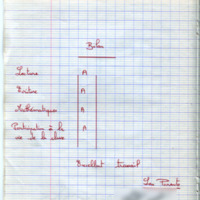 Bilan
Lecture A
Ecriture A
Mathématiques A
Participation à la A
vie de la classe
Excellent travail
Les Parents